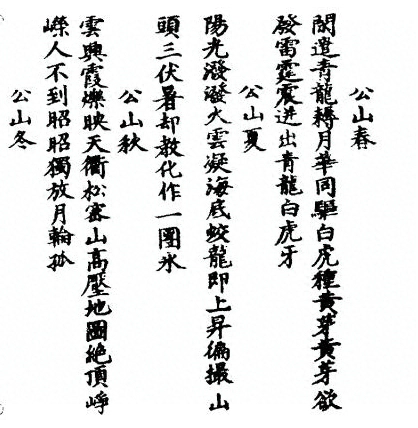 公山春
閑遣青龍耨月華同驅白虎種黃芽黃芽欲
發雷霆震迸出青龍白虎牙
公山夏
陽光潑潑火雲凝海底蛟龍即上昇偏撮山
頭三伏暑却教化作一團氷
公山秋
雲興霞爍映天衢松塞山高壓地圖絕頂崢
嶸人不到昭昭獨放月輪孤
公山冬